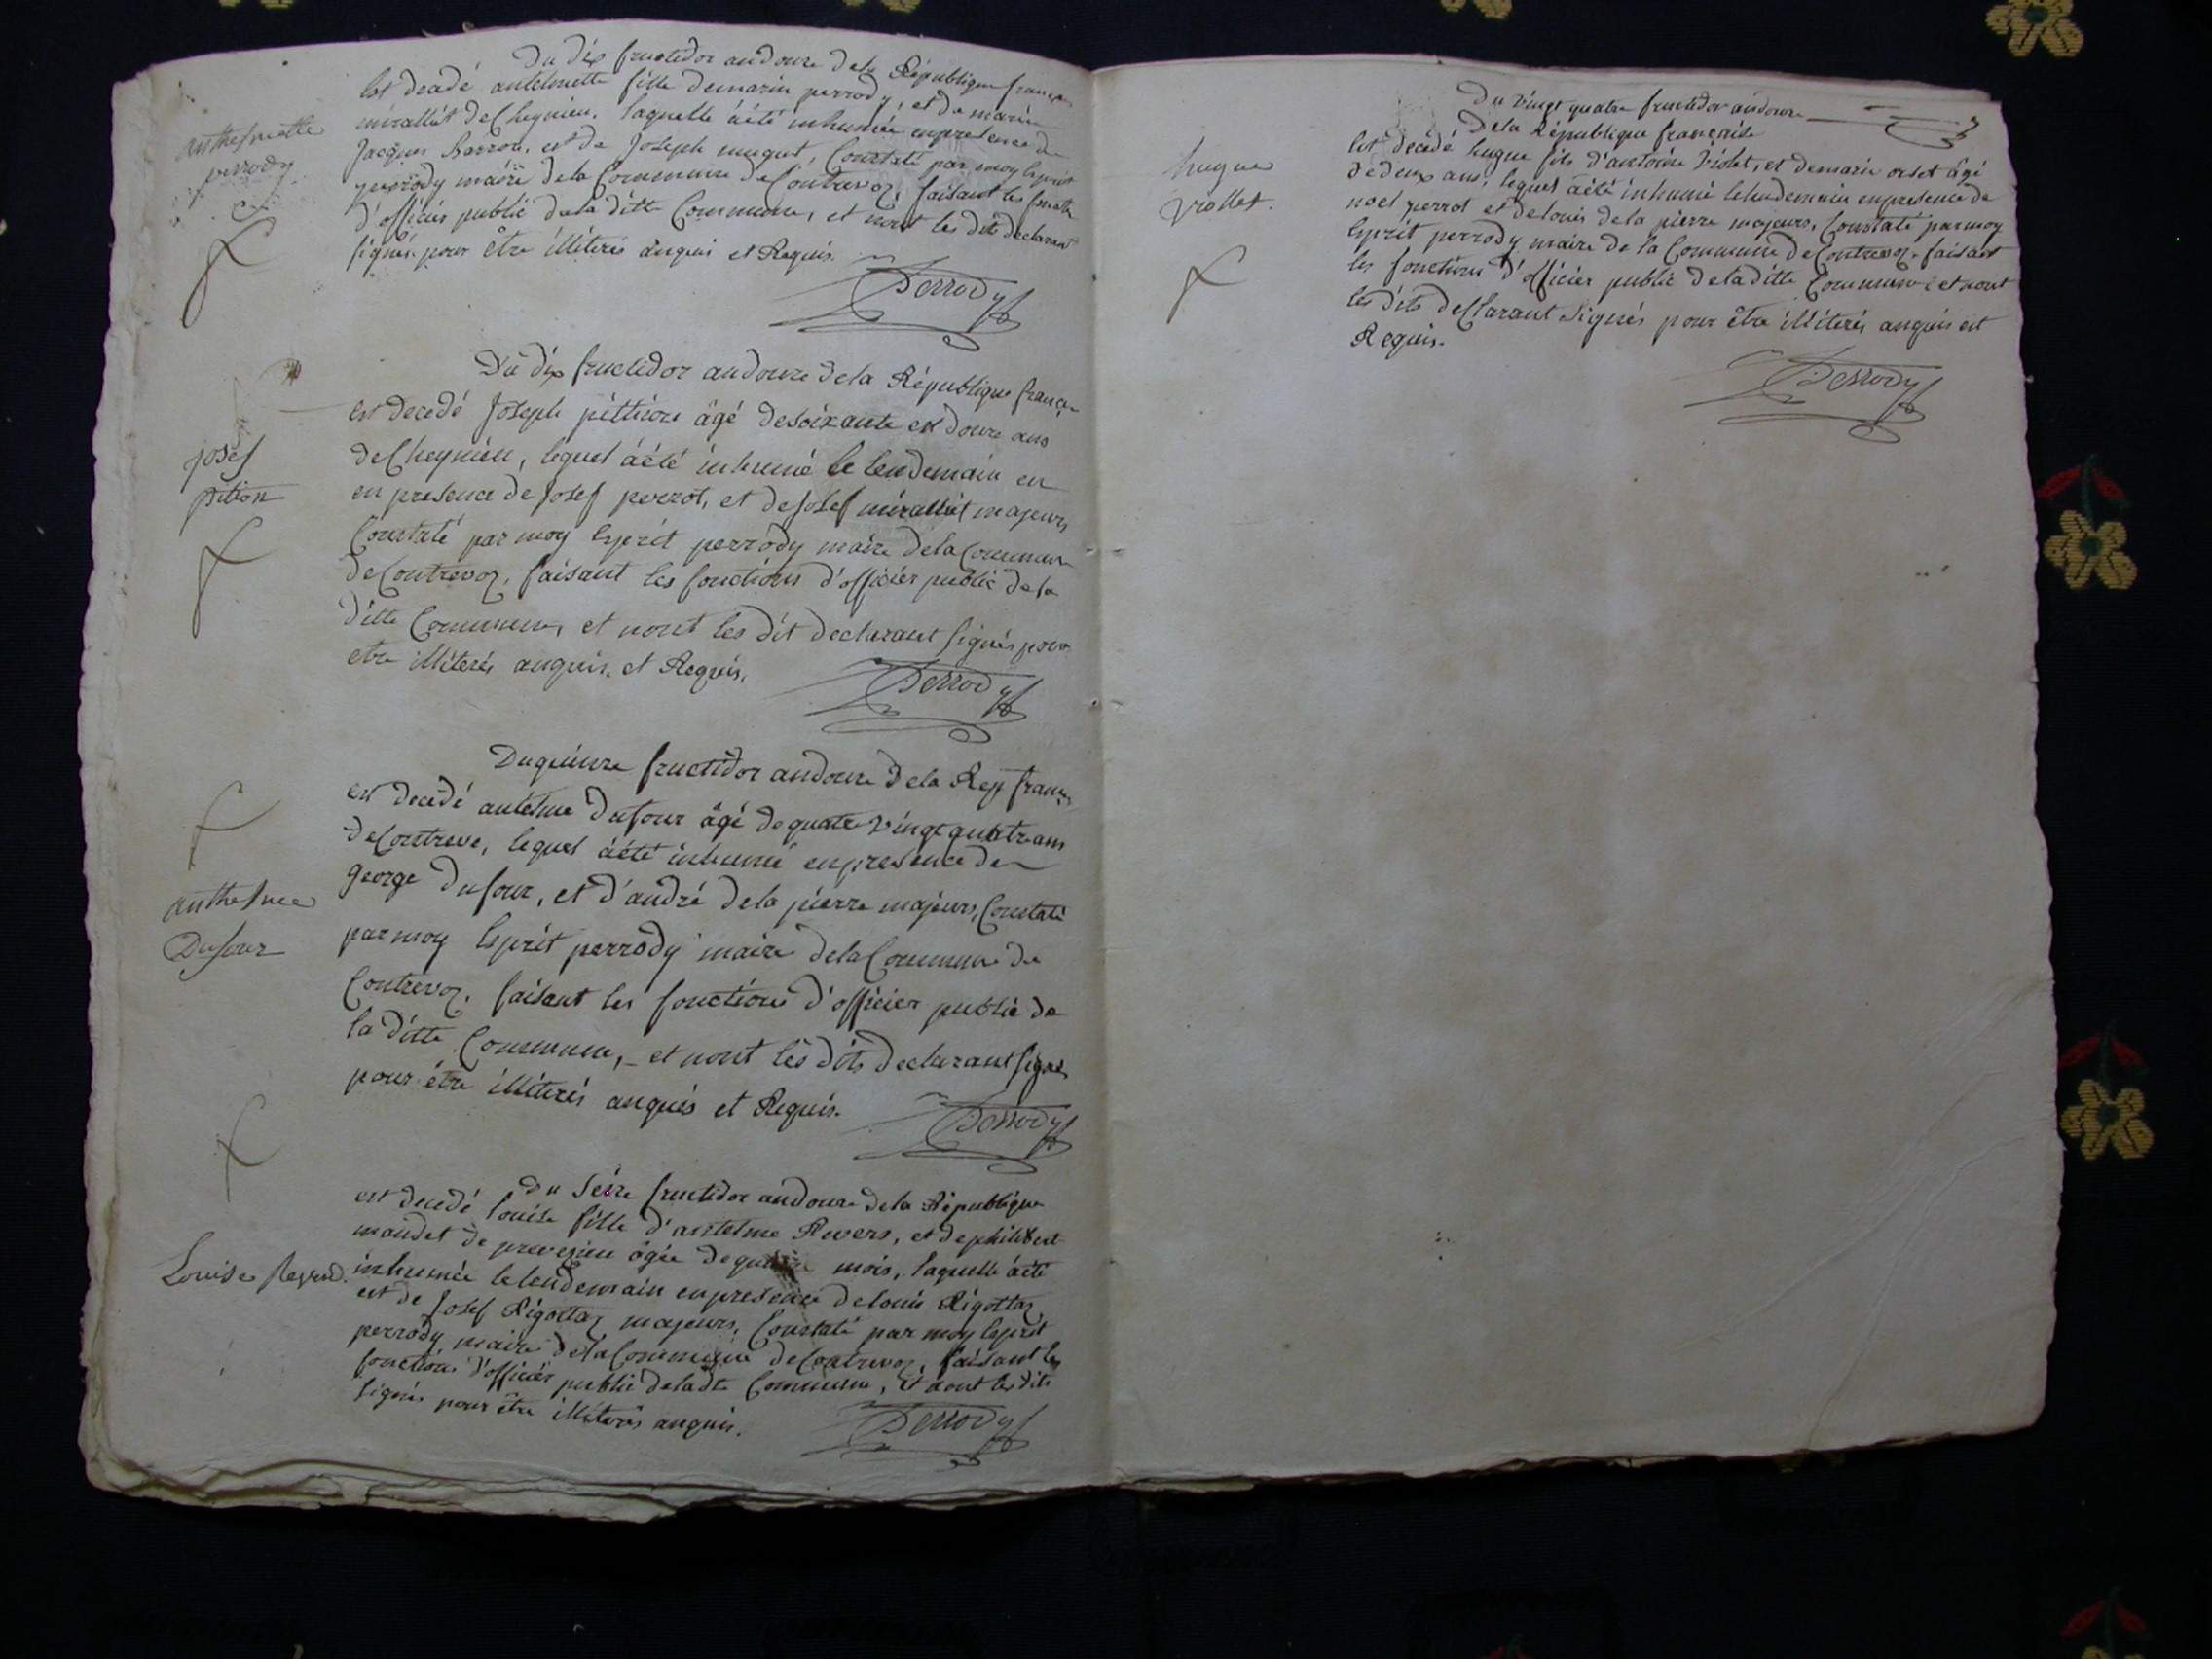 Du dix fructidor an douze de la République françai
Est decedé antelmette fille de marin perrody, et de marie
miralliét de Cheynieu, laquelle à été inhumée en presence de
Jacques Barron, et de Joseph muguet, Constaté par moy Esprit
perrody maire de la Commune de Contrevoz, faisant les fonction
d'officier public de la ditte Commune, et n'ont les dits declarant
signés pour être illiterés anquis et Requis.
Perrody
anthelmette
perrody
Du dix fructidor an douze de la République françai
est decedé Joseph pittion âgé de soixante et douze ans
de Cheynieu, lequel à été inhumé le lendemain en
en presence de Josef perrot, et de Josef mirallièt majeurs
Constaté par moy Esprit perrody maire de la Commune
de Contrevoz, faisant les fonctions d'officier public de la
ditte Commune, et n'ont les dit declarant signés pour
etre illiterés anquis, et Requis.
Perrody
josef
pition
Du quinze fructidor an douze de la Rep franç
est decedé antelme Dufour âgé de quatre vingt quatre ans
de Contreve, lequel à été inhumé en presence de
george Dufour, et d'andré de la pierre majeurs, Constaté
par moy Esprit perrody maire de la Commune de
Contrevoz, faisant les fonctions d'officier public de
la ditte Commune, et n'ont les dits declarant signés
pour être illiterés anquis et Requis.
Perrody
anthelme
Dufour
du seize fructidor an douze de la République
est decedé louise fille d'antelme Revers, et de philiberte
mandet de preveyieu âgée de mois, laquelle à été
inhumée le lendemain en presence de louis Rigottaz
et de Josef Rigottaz majeurs, Constaté par moy Esprit
perrody maire de la Commune de Contrevoz, faisant les
fonctions d'officier public de la dte Commune, et n'ont les dits
signés pour être illiterés anquis.
Perrody
Louise
Du vingt quatre fructidor an douze
de la République française
Est decédé hugue fils d'antoine Violet, et de marie orset âgé
de deux ans, lequel à été inhumé le lendemain en presence de
noel perrot et de louis de la pierre majeurs, Constaté par moy
Esprit perrody maire de la Commune de Contrevoz, faisant
les fonctions d'officier public de la ditte Commune et n'ont
les dits declarant signés pour être illiterés anquis et
Requis.
Perrody
hugue
viollet.